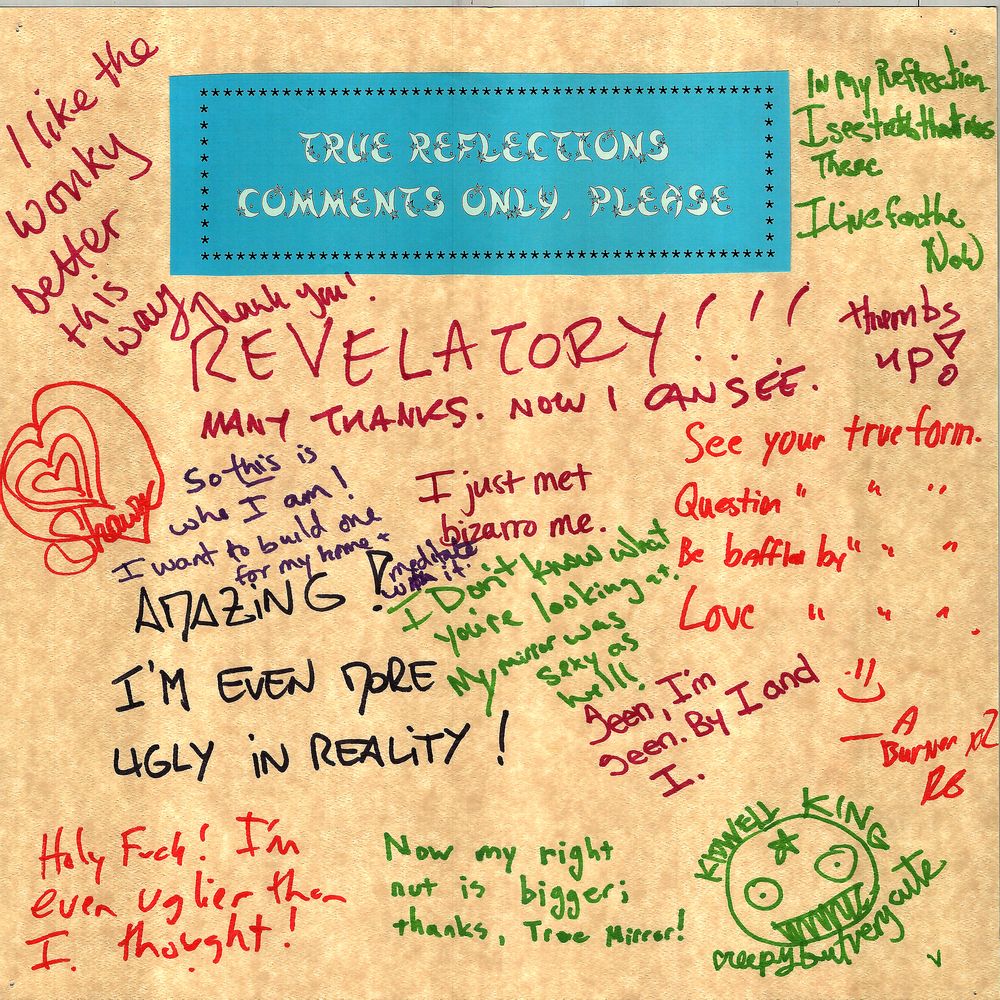 TRUE REFLECTIONS
COMMENTS ONLY, PLEASE
I like the
wonky
better
this
way
In my Reflection
I see truth that was
There
I Live for the
Now
Thank you!
REVELATORY!!!
MANY THANKS. NOW I CAN SEE.
thumbs
up!
Shawna
So this is
who I am!
I want to build one
for my home +
meditate
with it.
I just met
bizarro me.
See your true form.
Question " " "
Be baffled by " " "
Love " " " .
:)
— A
Burner x2
RG
AMAZING!
I'M EVEN MORE
UGLY IN REALITY!
I Don't know what
you're looking at.
My mirror was
sexy as
hell!
Seen, I'm
seen. By I and
I.
Holy Fuck! I'm
even uglier than
I thought!
Now my right
nut is bigger;
thanks, True Mirror!
KIDWELL KING
creepy but very cute